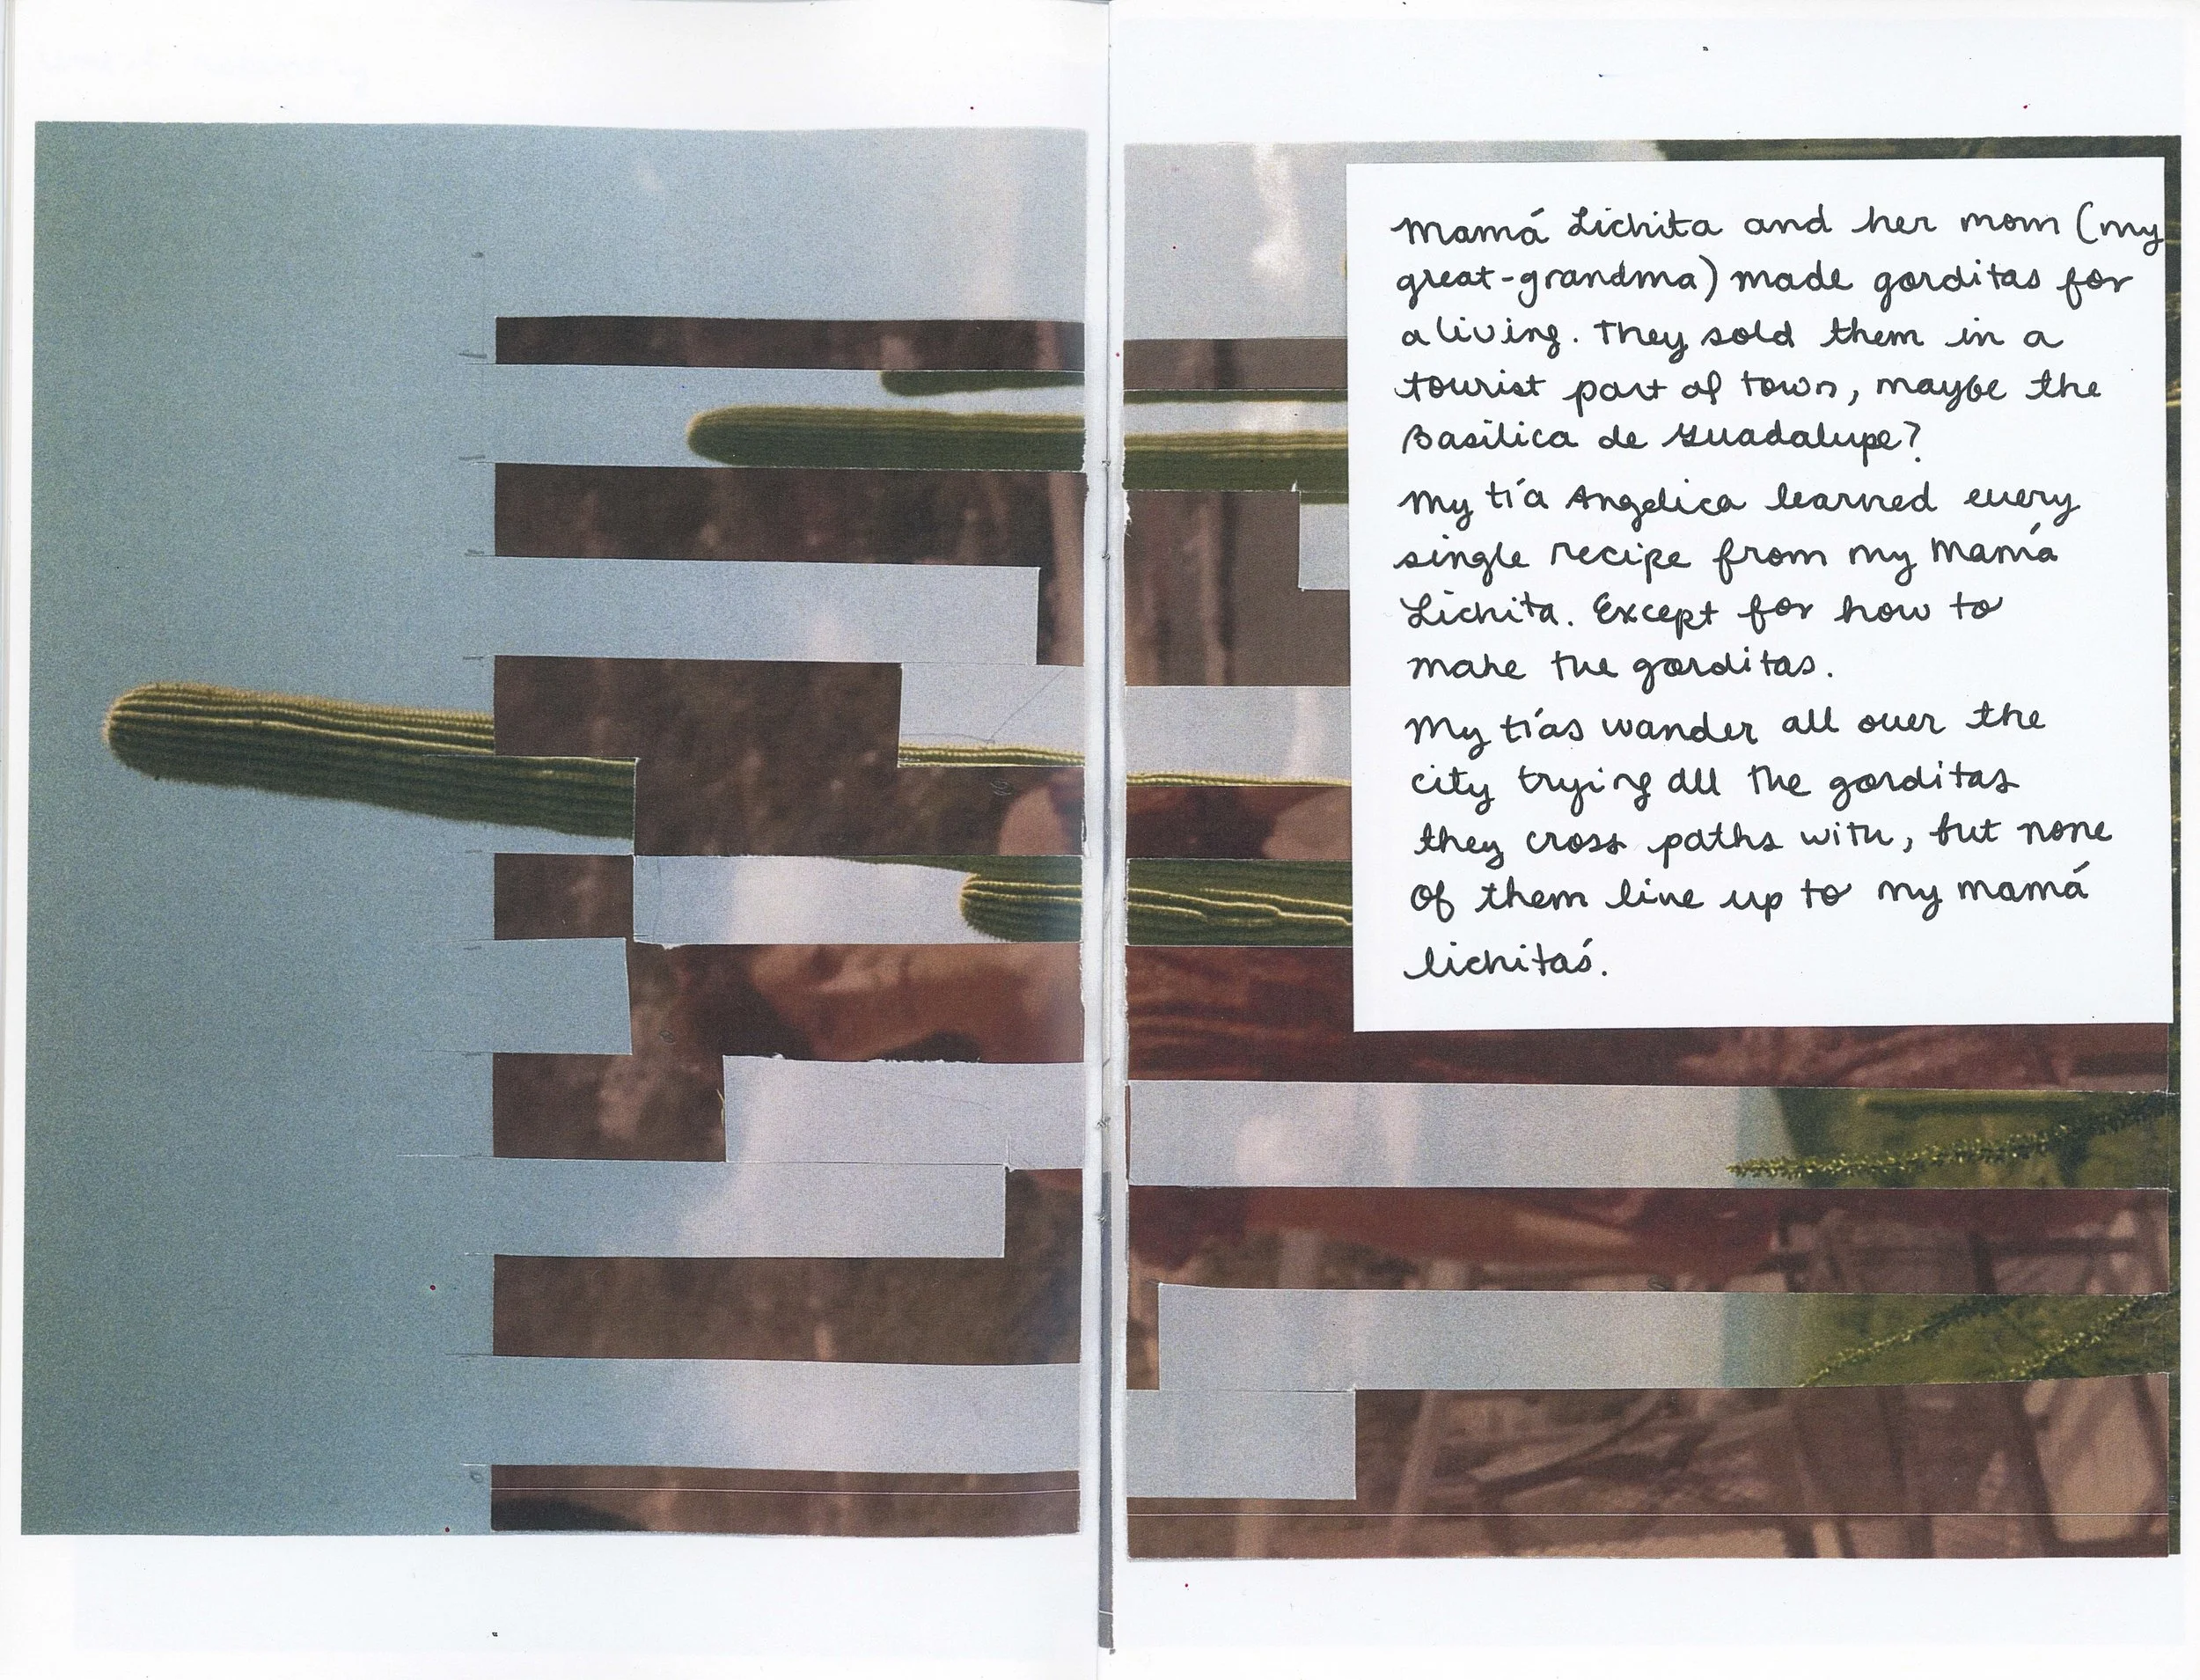 Mamá Lichita and her mom (my
great-grandma) made gorditas for
a living. They sold them in a
tourist part of town, maybe the
Basilica de Guadalupe?
My tía Angelica learned every
single recipe from my Mamá
Lichita. Except for how to
make the gorditas.
My tías wander all over the
city trying all the gorditas
they cross paths with, but none
of them line up to my mamá
lichitaś.